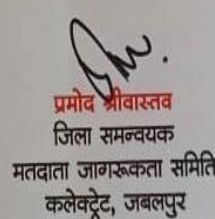 प्रमोद श्रीवास्तव
जिला समन्वयक
मतदाता जागरूकता समिति
कलेक्ट्रेट, जबलपुर